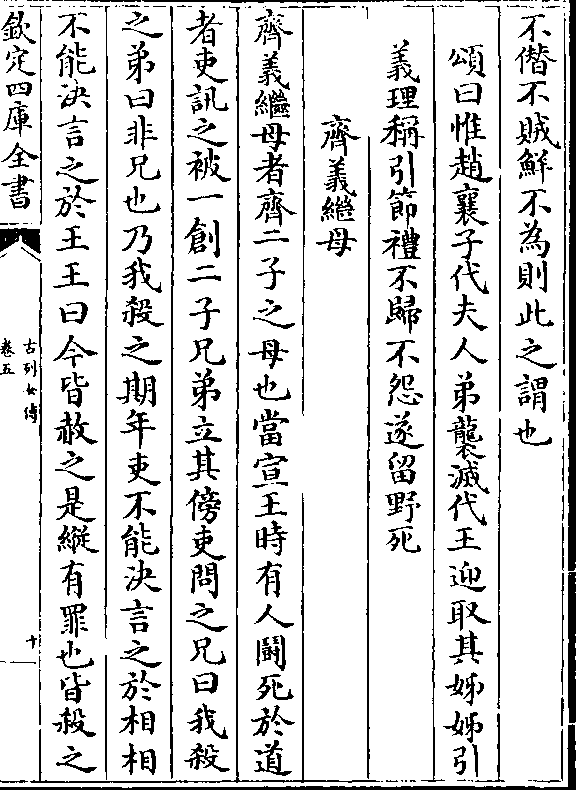 不僭不賊鮮不為則此之謂也
頌曰惟趙襄子代夫人弟襲滅代王迎取其姊姊引
義理稱引節禮不歸不怨遂留野死
齊義繼母
齊義繼母者齊二子之母也當宣王時有人鬬死於道
者吏訊之被一創二子兄弟立其傍吏問之兄曰我殺
之弟曰非兄也乃我殺之期年吏不能決言之於相相
不能決言之於王王曰今皆赦之是縱有罪也皆殺之
欽定四庫全書
古列女傳
卷五
十